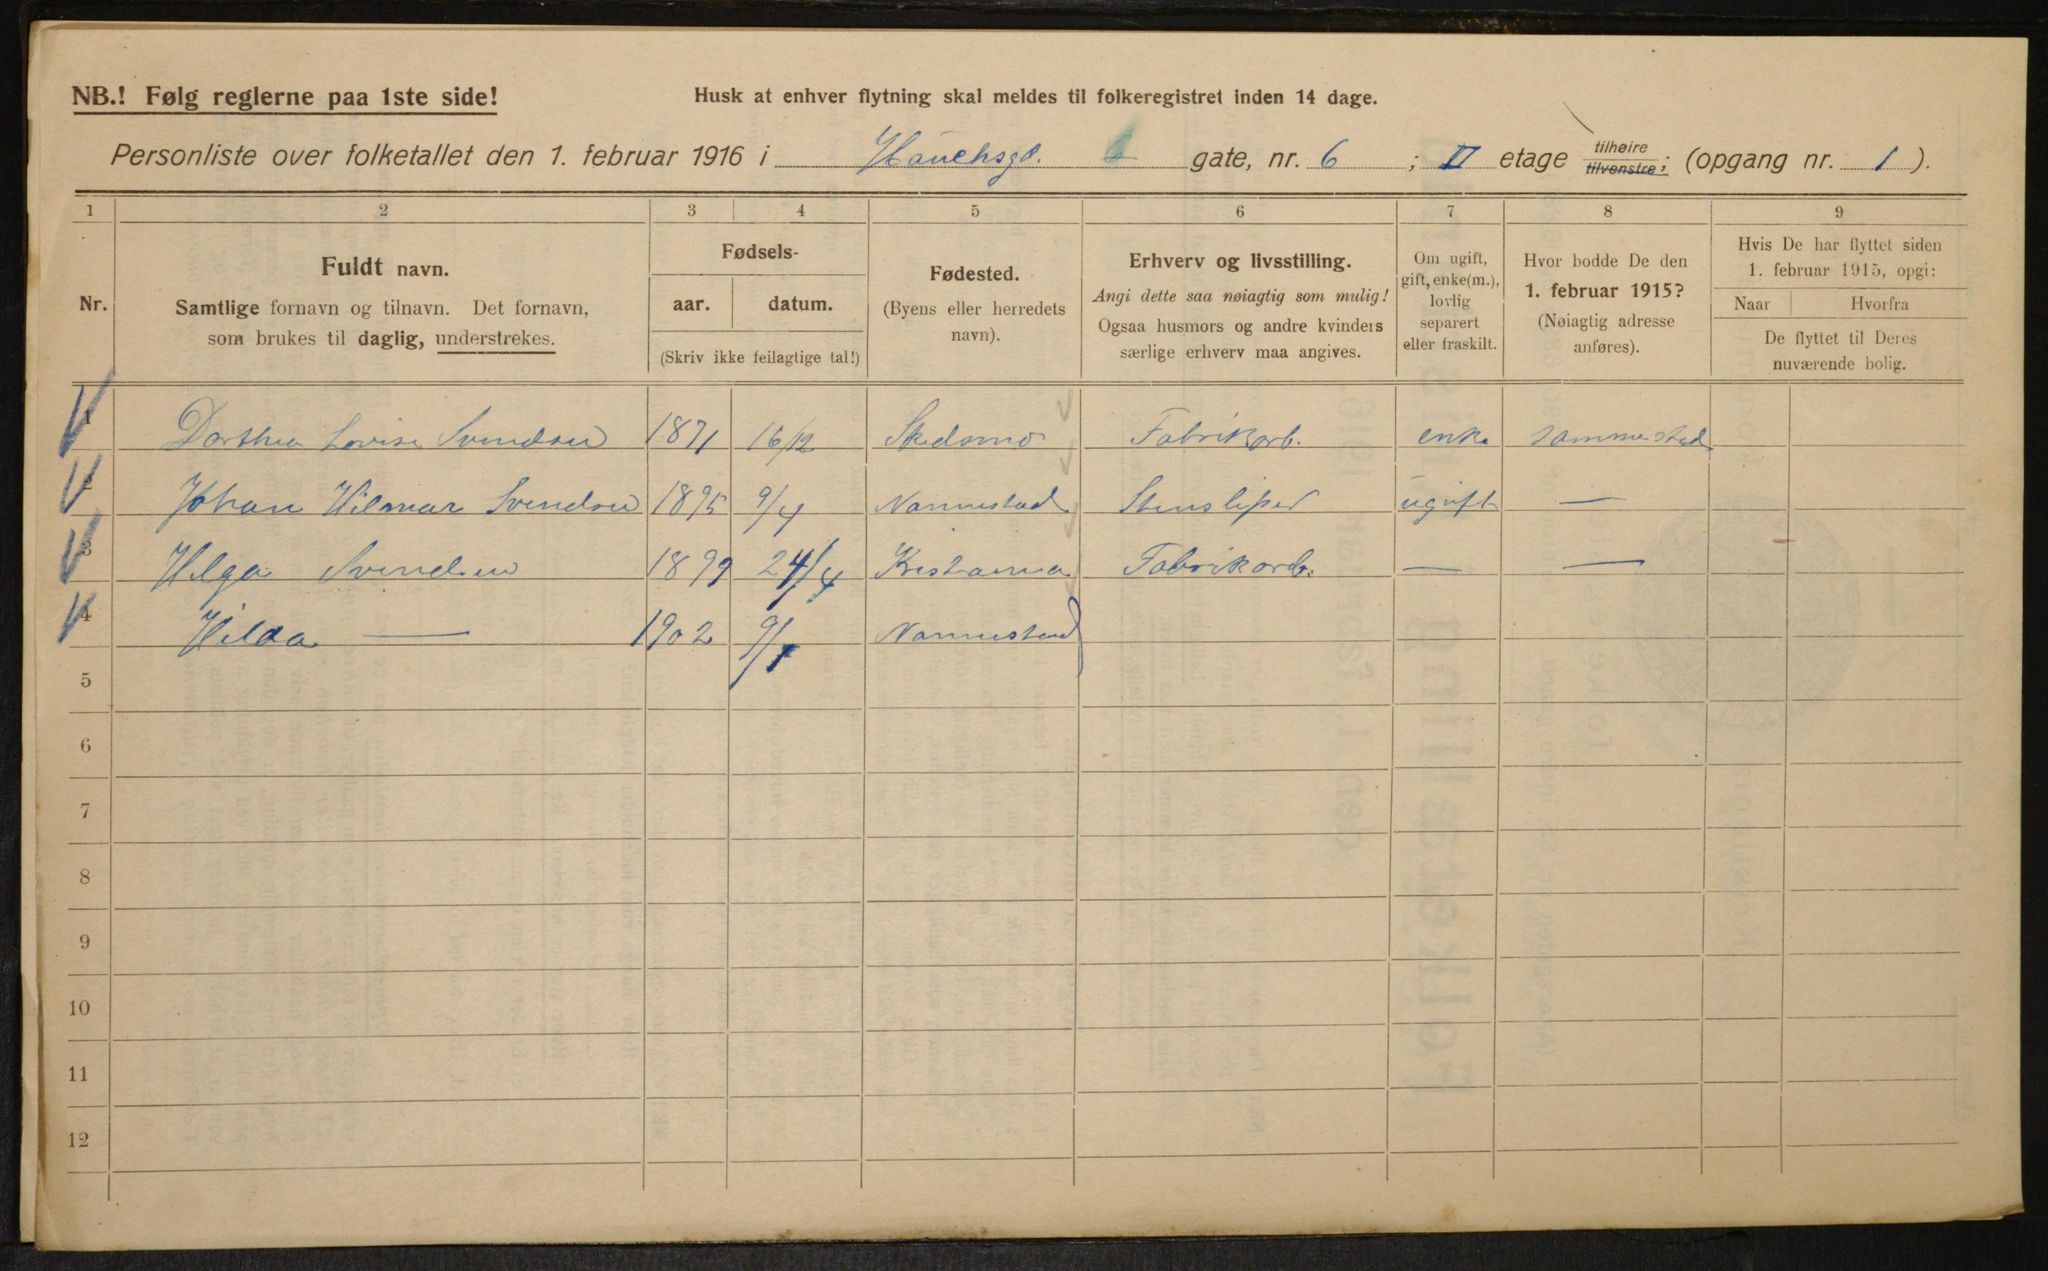 NB.! Følg reglerne paa 1ste side!
Husk at enhver flytning skal meldes til folkeregistret inden 14 dage.
Personliste over folketallet den 1. februar 1916 i Hauchsgd. gate, nr. 6 ; II etage tilhøire tilvenstre; (opgang nr. 1 ).
1 2 3 4 5 6 7 8 9
Nr.
Fuldt navn.
Samtlige fornavn og tilnavn. Det fornavn,
som brukes til daglig, understrekes.
Fødsels-
aar. datum.
(Skriv ikke feilagtige tal!)
Fødested.
(Byens eller herredets
navn).
Erhverv og livsstilling.
Angi dette saa nøiagtig som mulig!
Ogsaa husmors og andre kvinders
særlige erhverv maa angives.
Om ugift,
gift, enke(m.),
lovlig
separert
eller fraskilt.
Hvor bodde De den
1. februar 1915?
(Nøiagtig adresse
anføres).
Hvis De har flyttet siden
1. februar 1915, opgi:
Naar Hvorfra
De flyttet til Deres
nuværende bolig.
1 Dorthea Lovise Svendsen 1871 16/12 Skedsmo Fabrikarb. enke sammested
2 Johan Hilmar Svendsen 1895 9/4 Nannestad Stensliper ugift —
3 Helga Svendsen 1899 24/4 Kristiania Fabrikarb. — —
4 Hilda — 1902 9/1 Nannestad
5
6
7
8
9
10
11
12